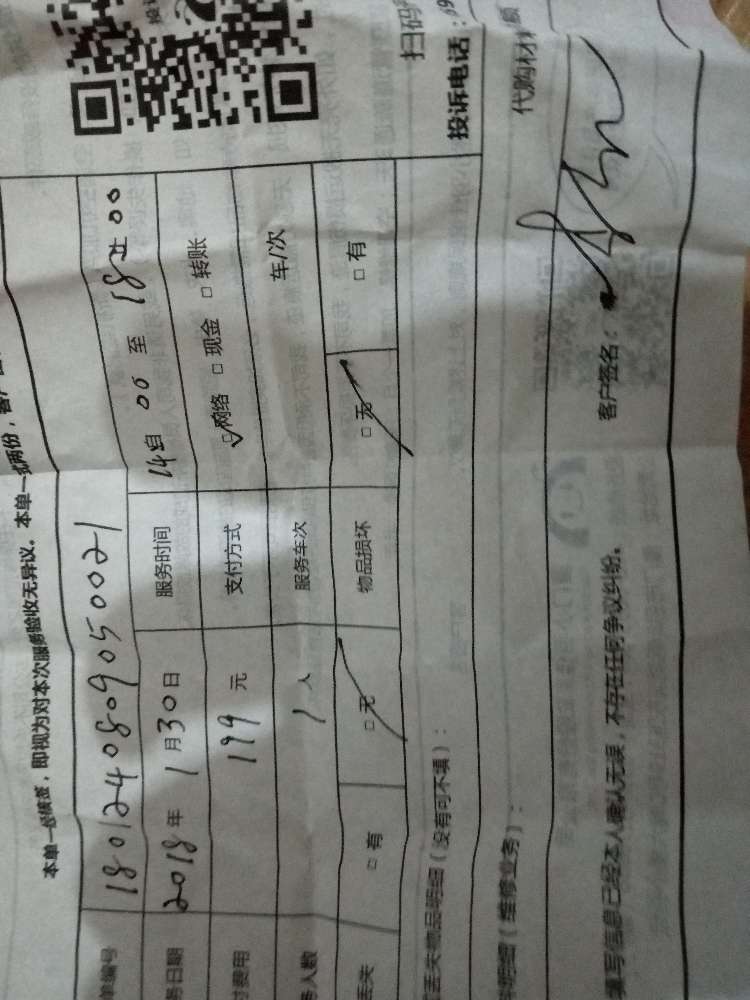 本单一经核签，即视为对本次服务验收无异议。本单一式两份，客户
单编号 1801240809050021
务日期 2018年1月30日 服务时间 14时00至18时00
费用 199元 支付方式 ☑网络 □现金 □转账
务人数 1人 服务车次 车/次
丢失 □有 □无 物品损坏 □无 □有
扫码
丢失物品明细（没有可不填）： 投诉电话：
明细（维修业务）： 代购材料
填写信息已经本人确认无误，不存在任何争议纠纷。 客户签名：